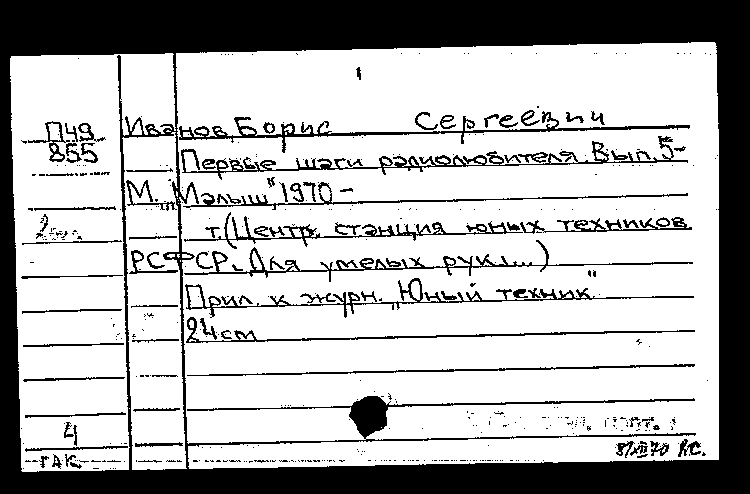 1
П49 Иванов, Борис Сергеевич
855 Первые шаги радиолюбителя. Вып. 5-
М., „Малыш", 1970 -
т. (Центр. станция юных техников
РСФСР. Для умелых рук....)
Прил. к журн. „Юный техник"
24 cm
4